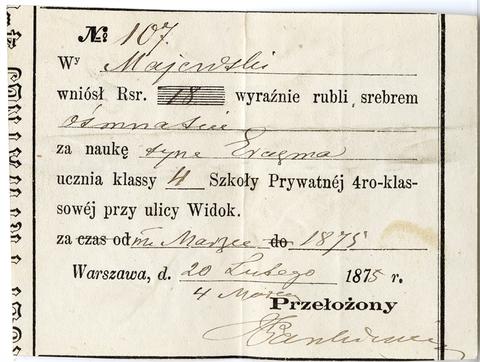 № 107.
Wy Majewski
wniósł Rsr. 18 wyraźnie rubli srebrem
ośmnaście
za naukę syna Erazma
ucznia klassy 4 Szkoły Prywatnéj 4ro-klas-
sowéj przy ulicy Widok.
za czas od m. Marzec do 1875
Warszawa, d. 20 Lutego 1875 r.
4 Marca
Przełożony